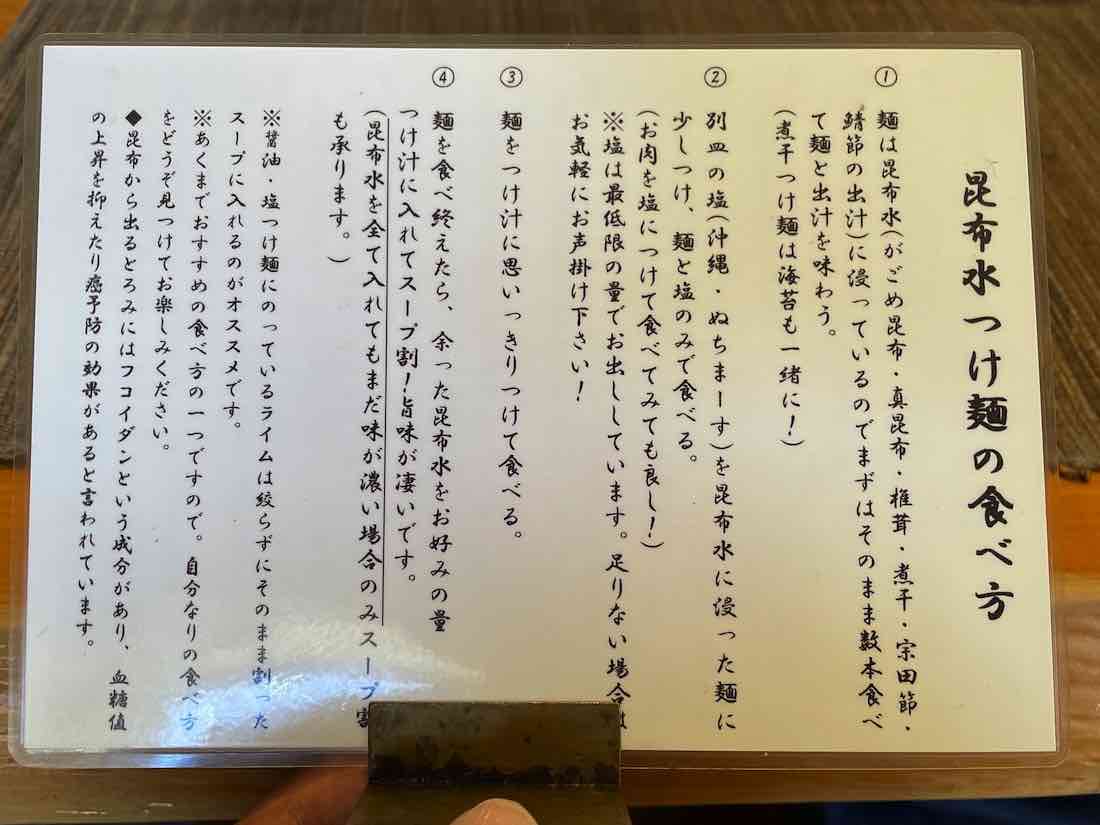 昆布水つけ麺の食べ方
① 麺は昆布水(がごめ昆布・真昆布・椎茸・煮干・宗田節・
鯖節の出汁)に浸っているのでまずはそのまま数本食べ
て麺と出汁を味わう。
(煮干つけ麺は海苔も一緒に!)
② 別皿の塩(沖縄・ぬちまーす)を昆布水に浸った麺に
少しつけ、麺と塩のみで食べる。
(お肉を塩につけて食べてみても良し!)
※塩は最低限の量でお出ししています。足りない場合は
お気軽にお声掛け下さい!
③ 麺をつけ汁に思いっきりつけて食べる。
④ 麺を食べ終えたら、余った昆布水をお好みの量
つけ汁に入れてスープ割!旨味が凄いです。
(昆布水を全て入れてもまだ味が濃い場合のみスープ割
も承ります。)
※醤油・塩つけ麺にのっているライムは絞らずにそのまま割った
スープに入れるのがオススメです。
※あくまでおすすめの食べ方の一つですので。自分なりの食べ方
をどうぞ見つけてお楽しみください。
◆昆布から出るとろみにはフコイダンという成分があり、血糖値
の上昇を抑えたり癌予防の効果があると言われています。